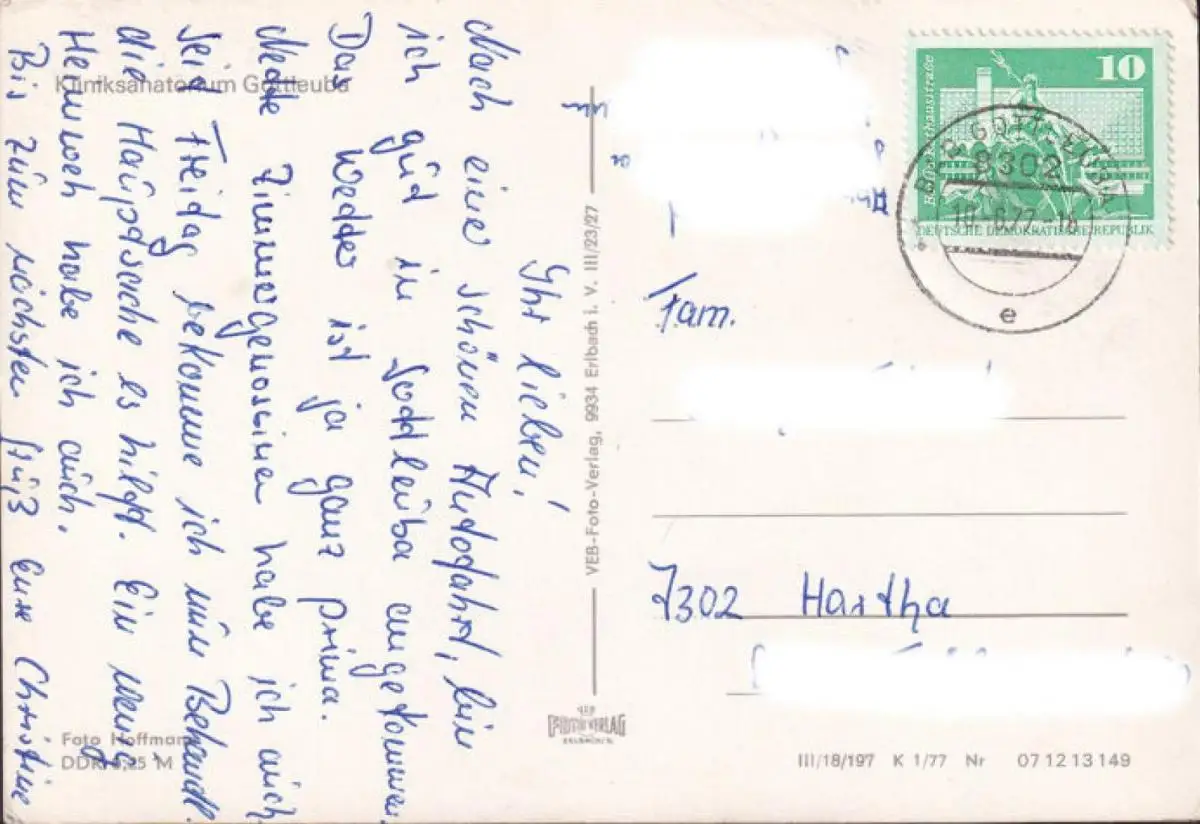 Kliniksanatorium Gottleuba
Ihr lieben!
Nach einer schönen Autofahrt, bin
ich gut in Gottleuba angekommen.
Das Wetter ist ja ganz prima.
Nette Zimmergenossinen habe ich auch
seit Freitag bekomme ich nun Behandl.
die Hauptsache es hilft. Ein wenig
Heimweh habe ich auch.
Bis zum nächsten Gruß Eure Christine
Foto Hoffmann
DDR 0,25 M
VEB-Foto-Verlag, 9934 Erlbach i. V. III/23/27
VEB
FOTO-VERLAG
ERLBACH/V.
10
DEUTSCHE DEMOKRATISCHE REPUBLIK
BAD GOTTLEUBA
8302
e
Fam.
7302 Hartha
III/18/197 K 1/77 Nr 07 12 13 149